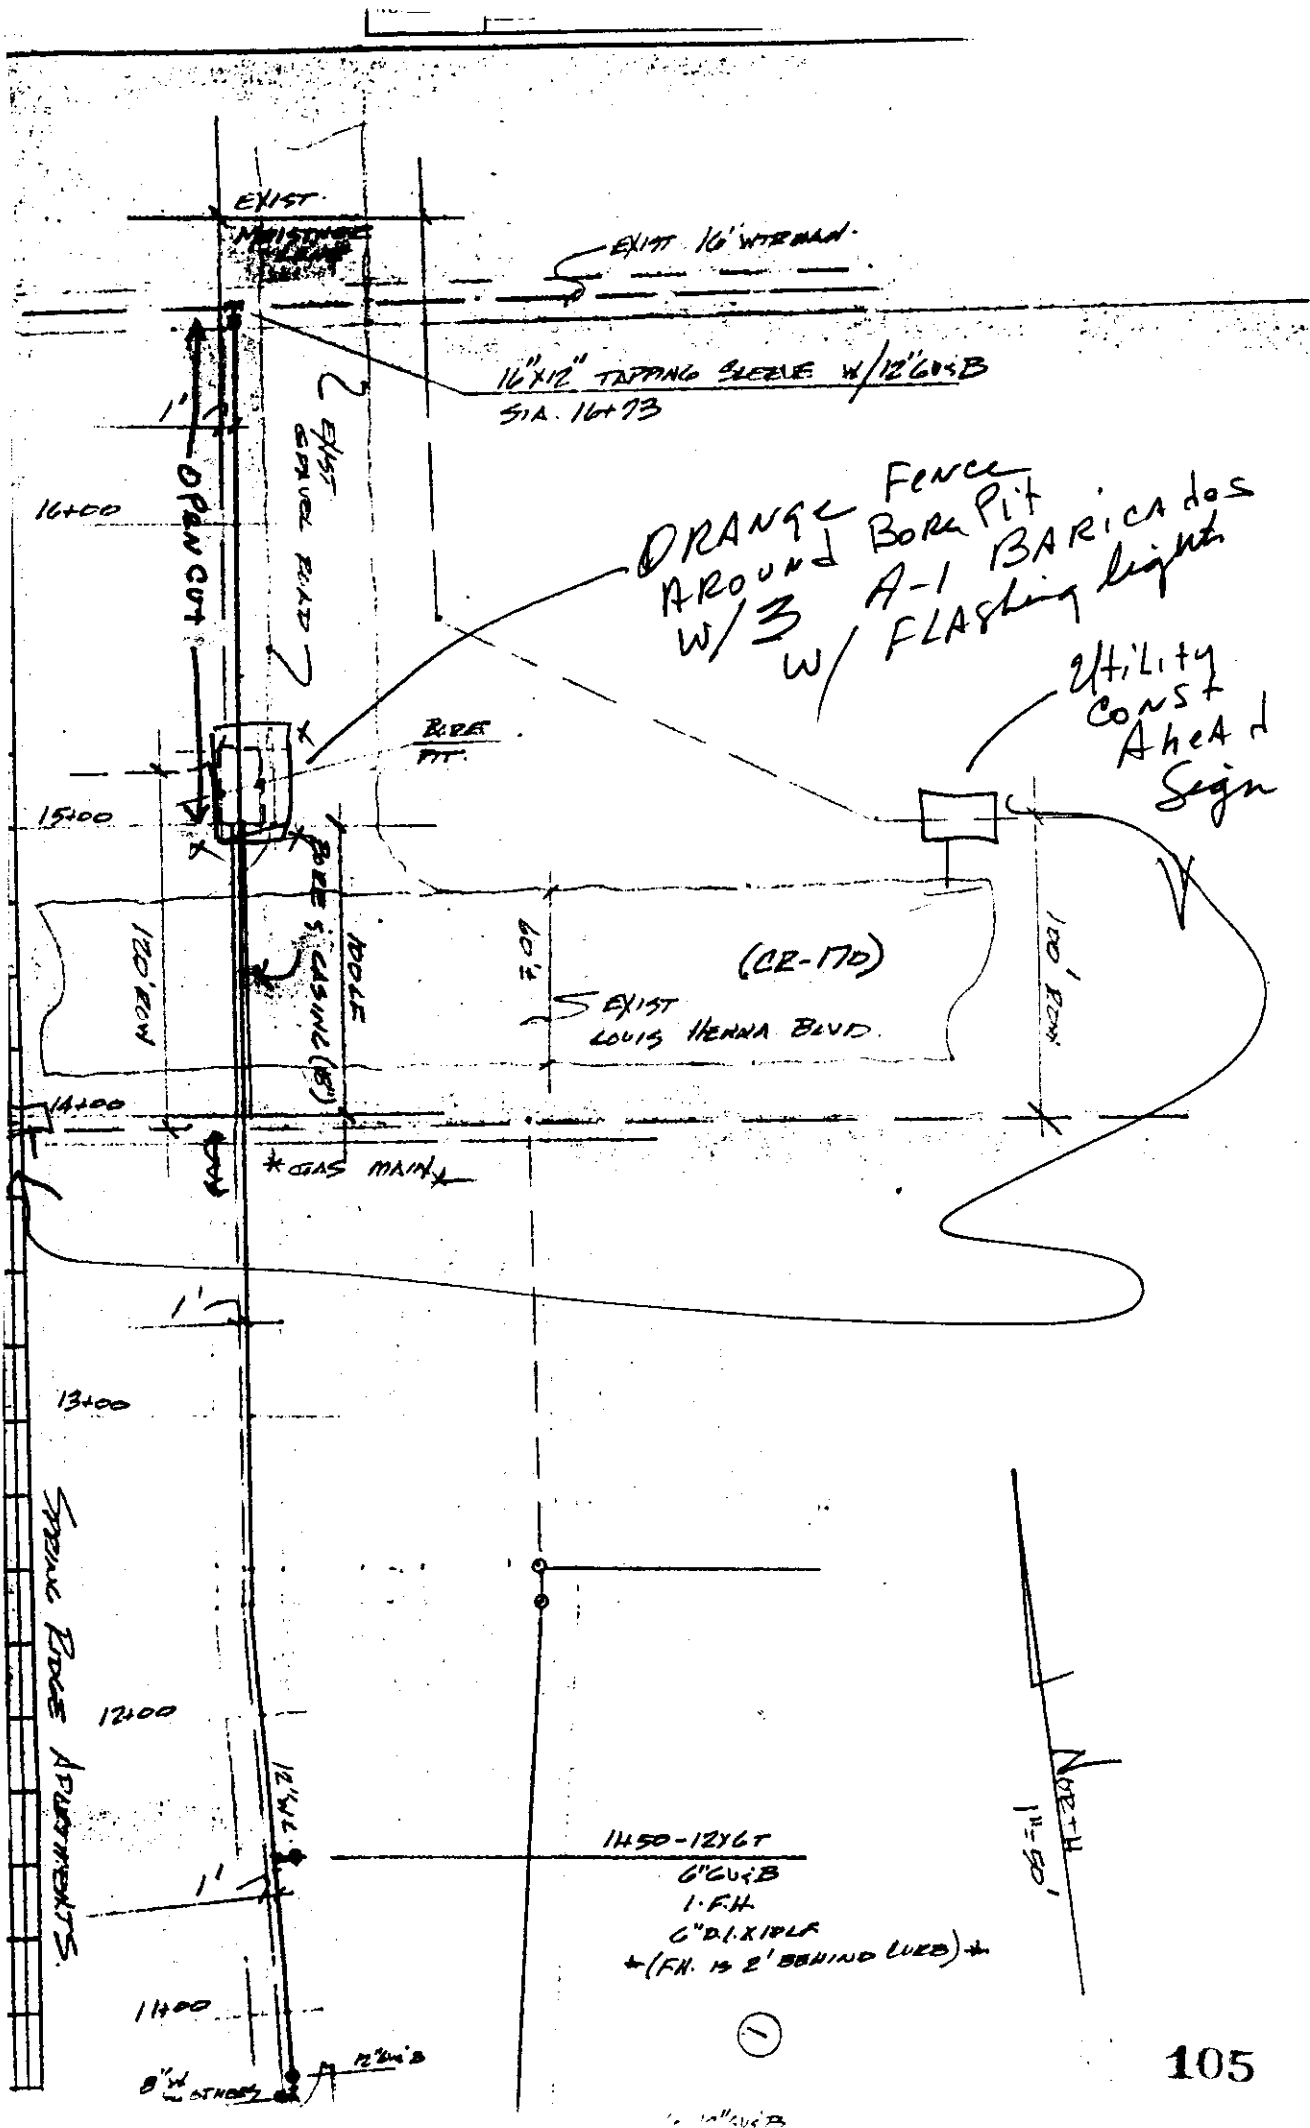 EXIST.
EXIST 16" WTR MAIN.
16"X12" TAPPING SLEEVE W/12"GV&B
STA. 16+73
1'
OPEN CUT
EXIST
GRAVEL ROAD
16+00
ORANGE Fence
AROUND Bore Pit
W/3 A-1 BARICAdos
W/ FLAShing lights
Utility
CONST
AheAd
Sign
BORE
PIT.
15+00
BORE & CASING (18")
100LF
120' ROW
60'±
(CR-170)
EXIST
LOUIS HENNA BLVD.
100' ROW
14+00
*GAS MAIN*
1'
13+00
SPRING RIDGE APARTMENTS.
12+00
12"WL
NORTH
1"=50'
11+50-12X6T
6"GV&B
1-F.H.
6"D.I.X18LF
*(F.H. IS 2' BEHIND CURB)*
1'
11+00
1
12"GV&B
8"W
OTHERS
105